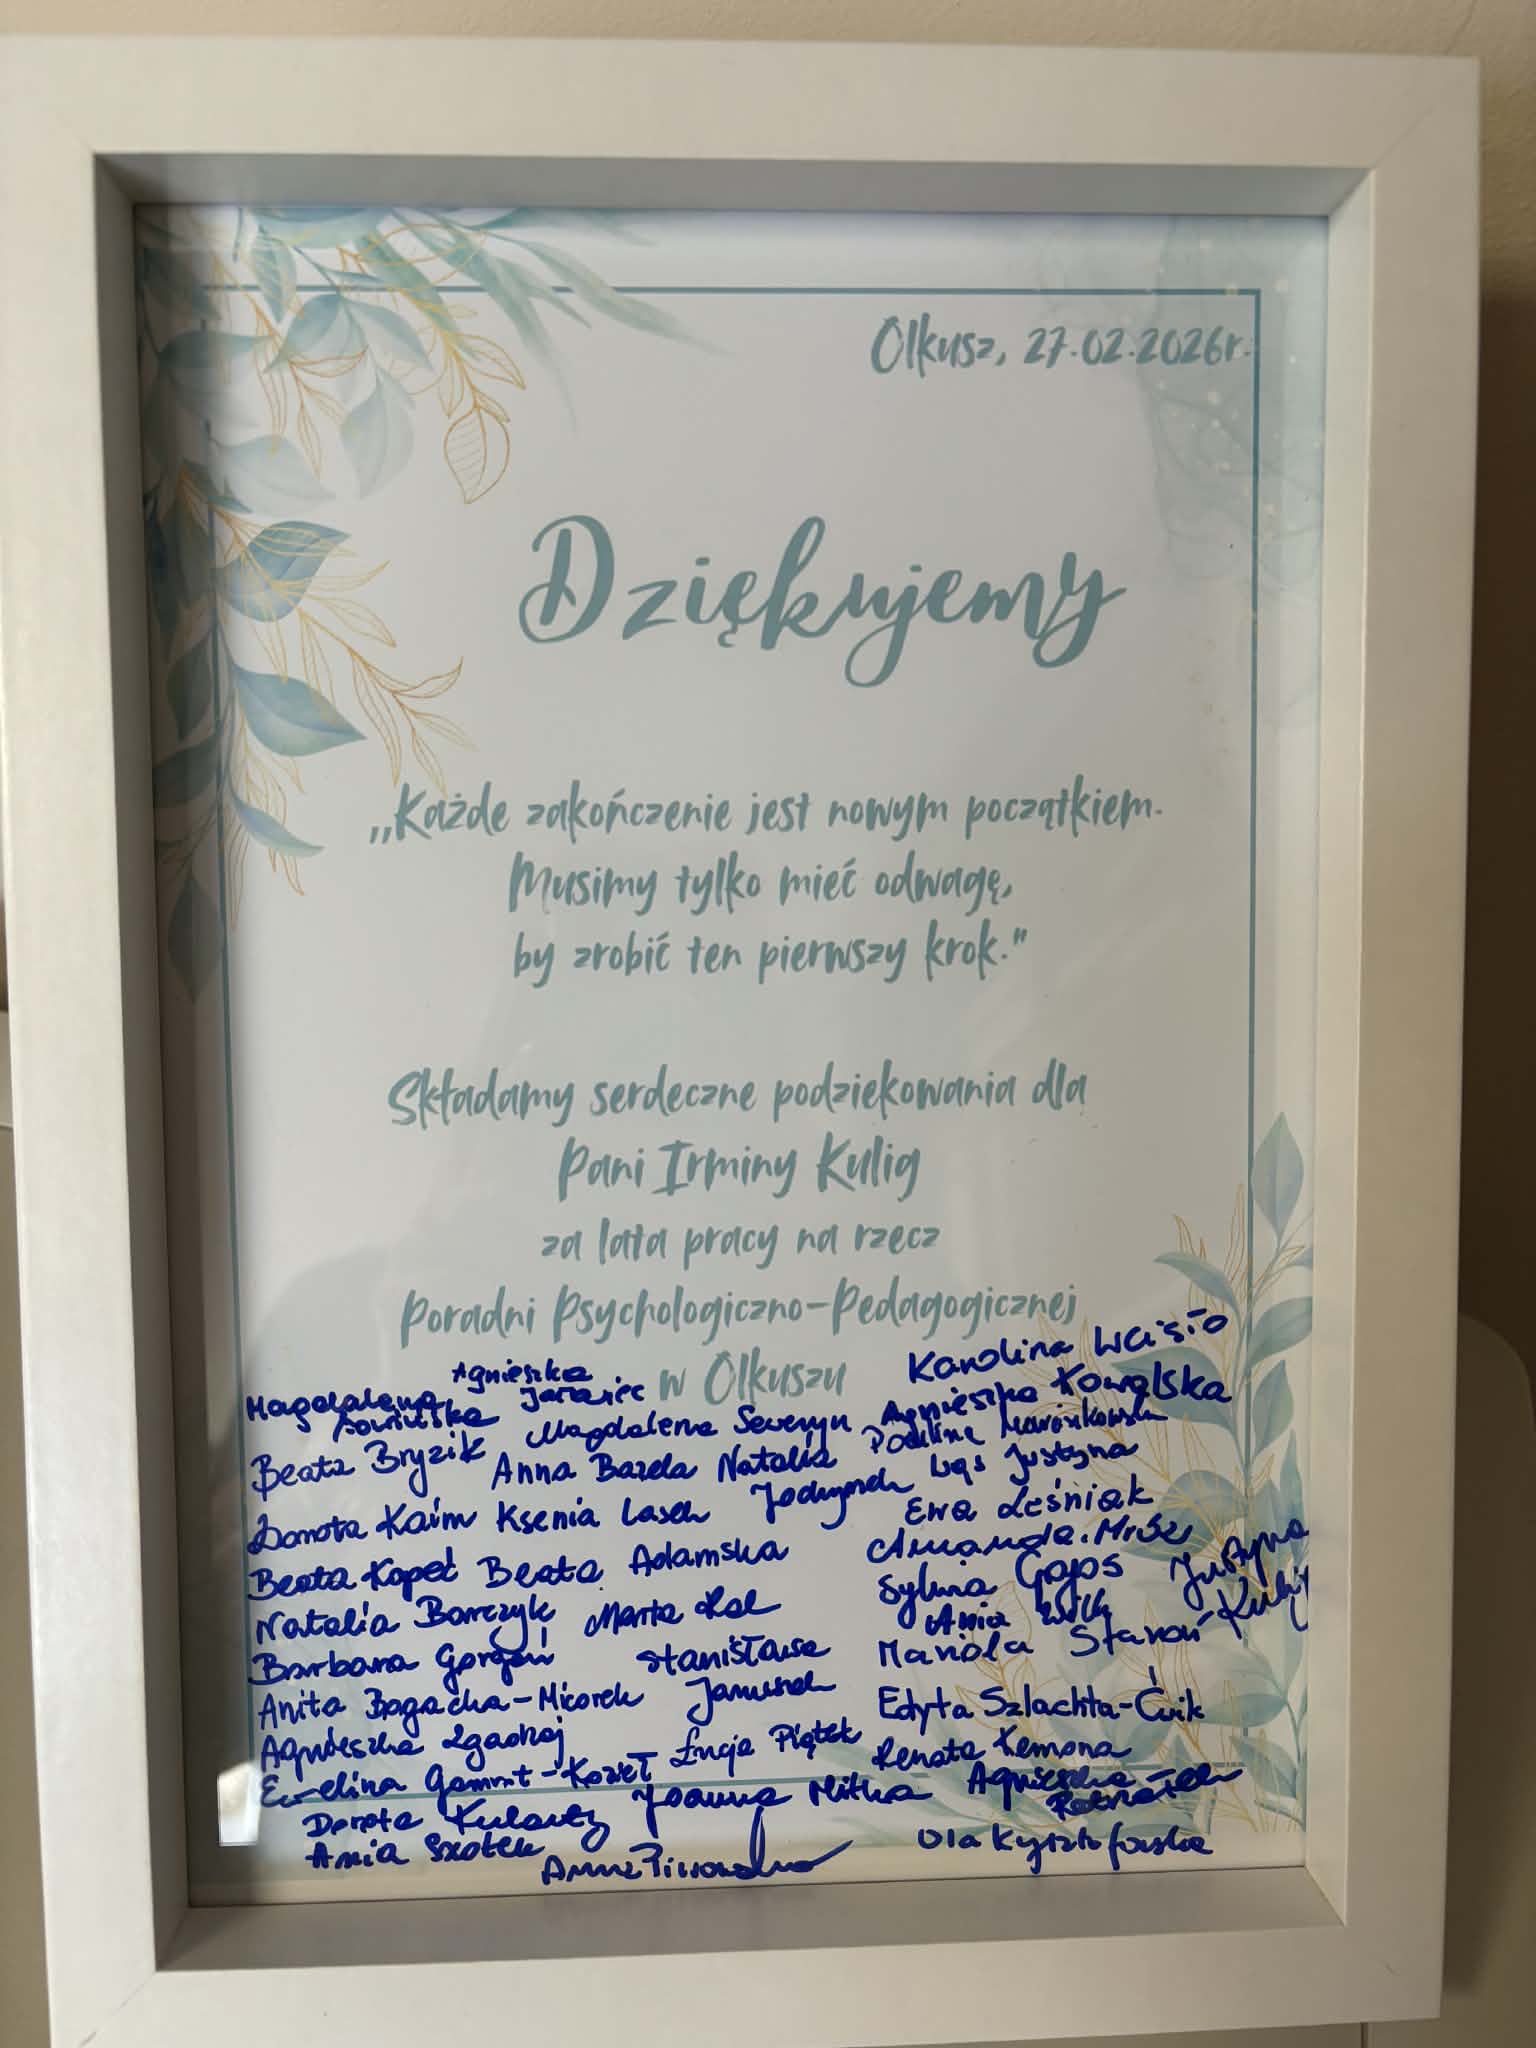 Olkusz, 27.02.2026r.
Dziękujemy
„Każde zakończenie jest nowym początkiem.
Musimy tylko mieć odwagę,
by zrobić ten pierwszy krok."
Składamy serdeczne podziękowania dla
Pani Irminy Kulig
za lata pracy na rzecz
Poradni Psychologiczno-Pedagogicznej
w Olkuszu
Karolina
Agnieszka
Magdalena
Agnieszka Kowalska
Magdalena Seweryn
Beata Bryzik
Paulina Marcinkowska
Anna Bazela Natalia
Wąs Justyna
Dorota Kaim Ksenia Lasek
Ewa Leśniak
Beata Kopeć Beata Adamska
Amanda Mróz
Sylwia Gajos
Justyna
Natalia Barczyk Marta Lal
Ania Wilk
Barbara Gorgoń Stanisława
Mariola Staroń
Anita Bogacka-Micorek Januszek
Edyta Szlachta-Ćwik
Agnieszka Zgadzaj
Łucja Piątek
Renata Kemona
Ewelina
Joanna Mitka
Agnieszka
Dorota
Ania Szotek
Anna Piwowarska
Ola Krysztoforska